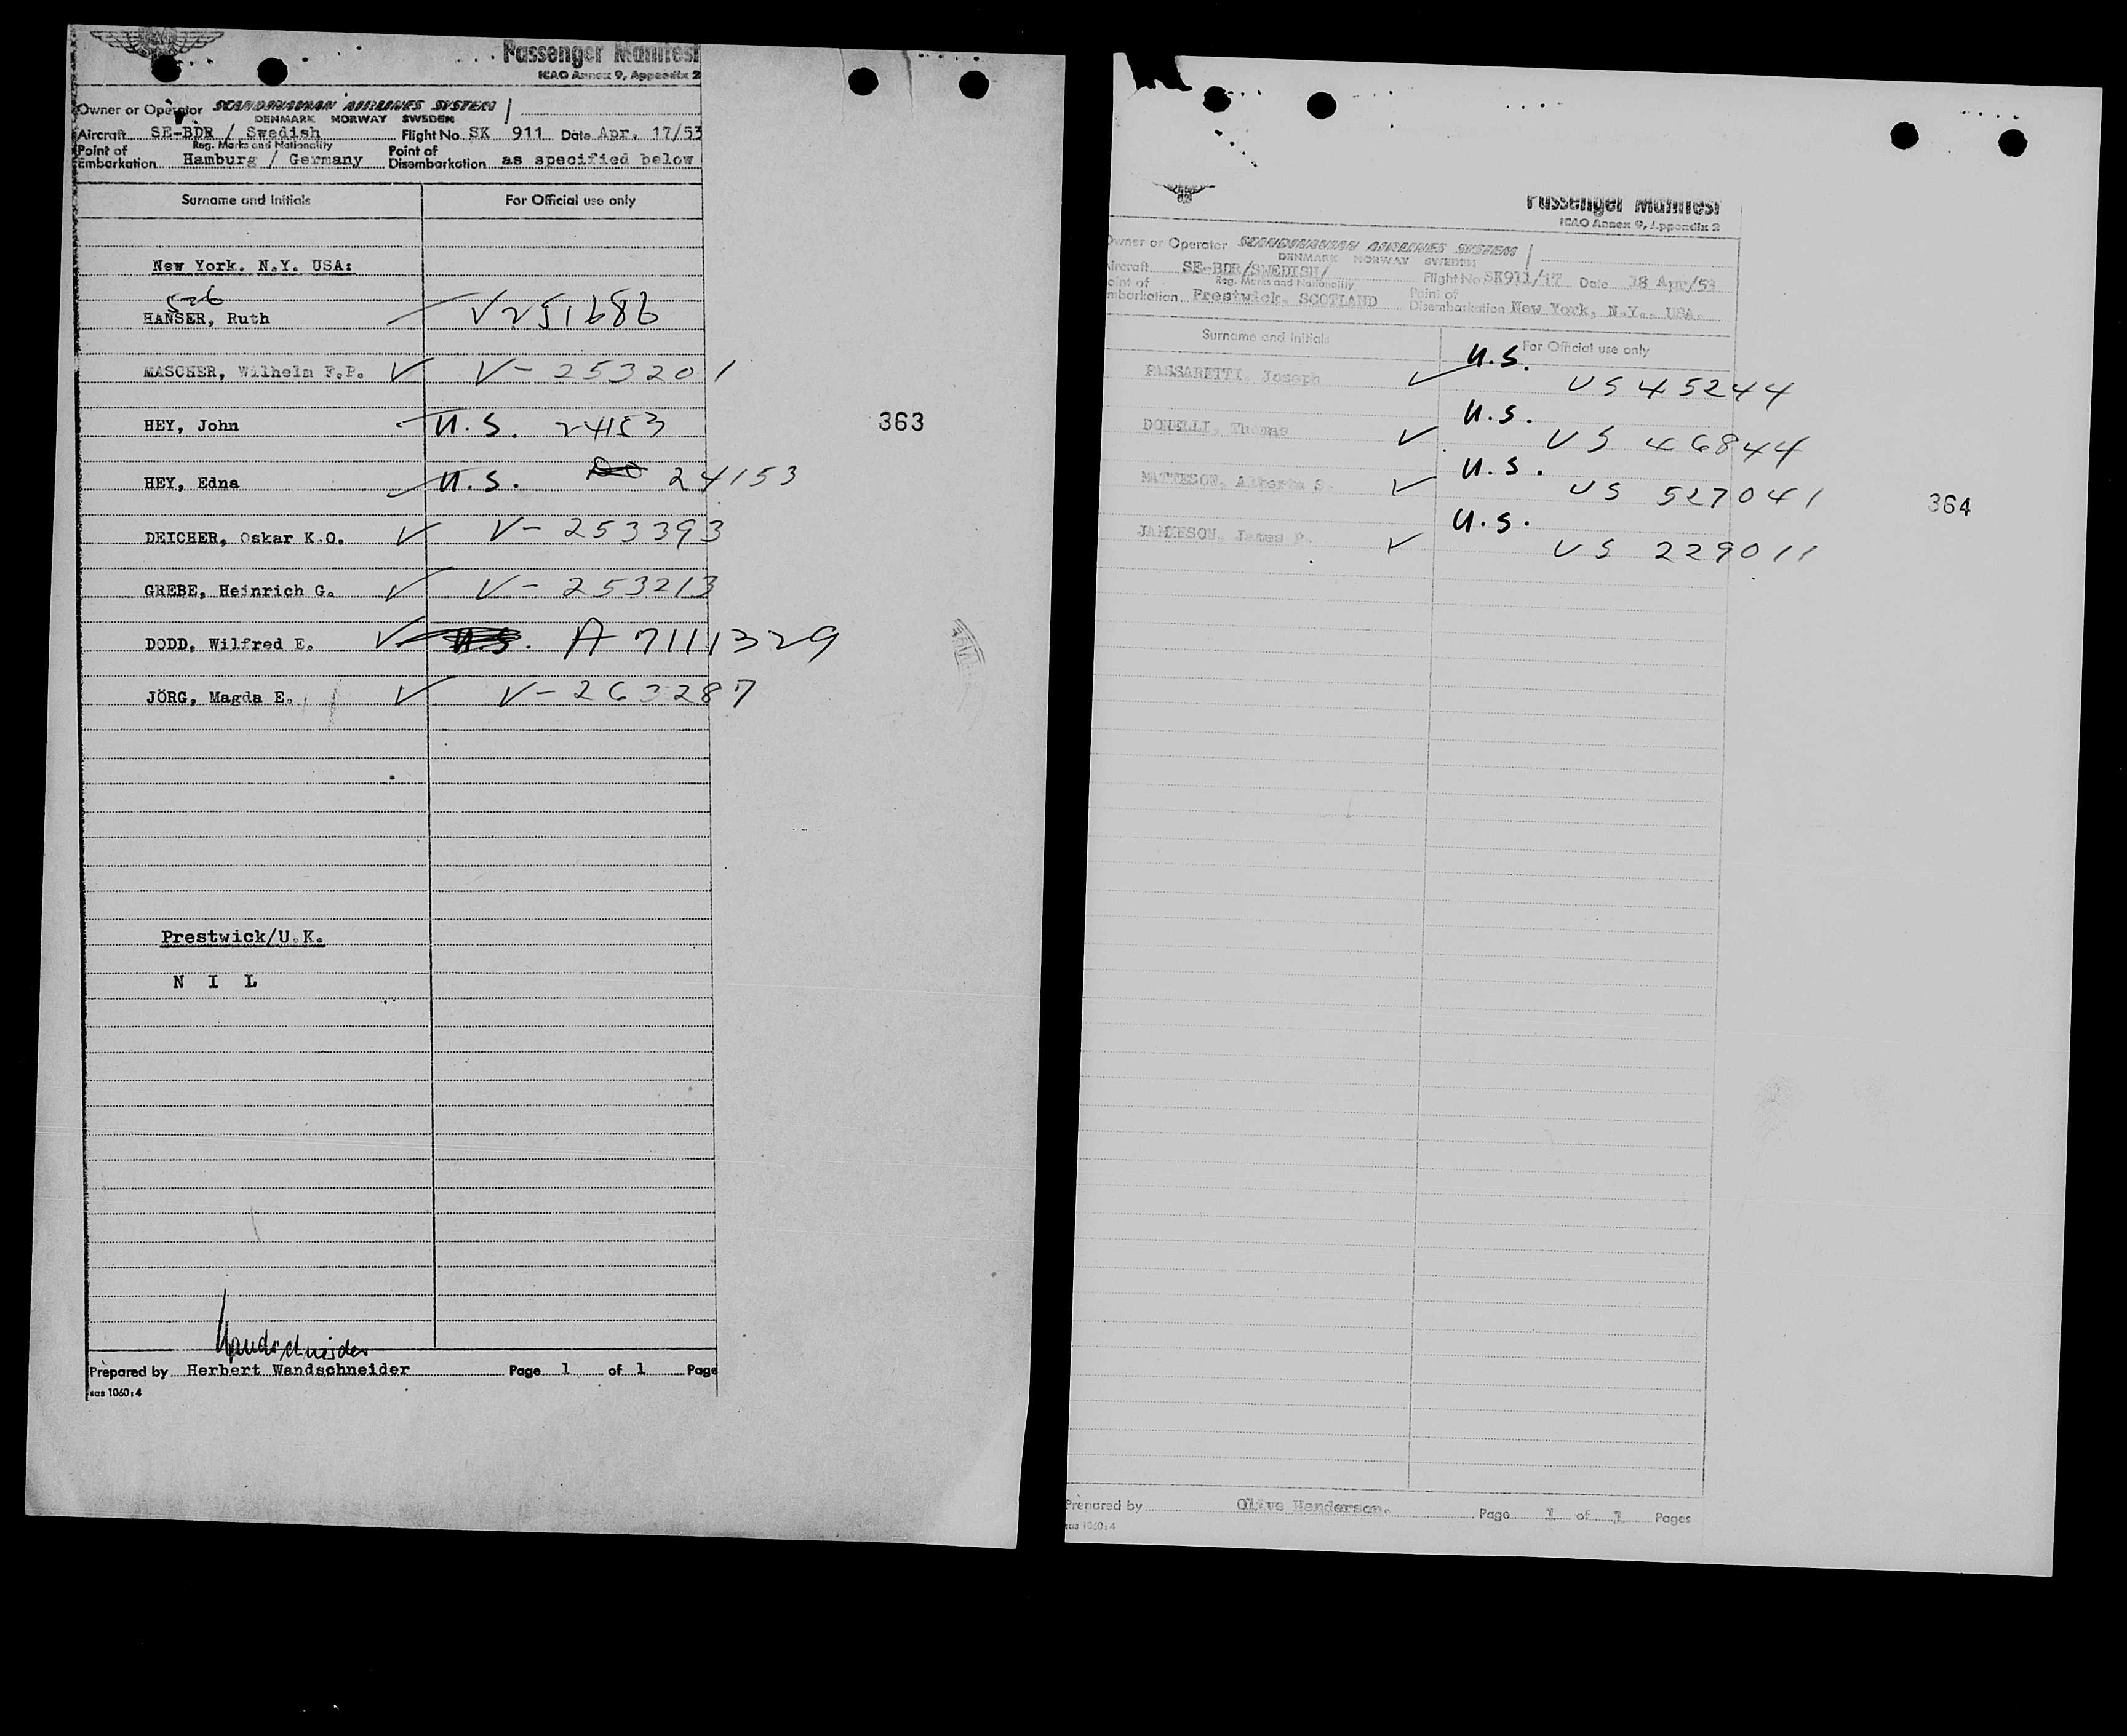 Passenger Manifest
ICAO Annex 9, Appendix 2
Owner or Operator SCANDINAVIAN AIRLINES SYSTEM
DENMARK NORWAY SWEDEN
Aircraft SE-BDR / Swedish Flight No. SK 911 Date Apr. 17/53
Reg. Marks and Nationality
Point of Embarkation Hamburg / Germany Point of Disembarkation as specified below
Surname and Initials For Official use only
New York. N.Y. USA:
HANSER, Ruth V251686
MASCHER, Wilhelm F.P. ✓ V-253201
HEY, John U.S. 24153
363
HEY, Edna ✓ U.S. 24153
DEICHER, Oskar K.O. ✓ V-253393
GREBE, Heinrich G. ✓ V-253213
DODD, Wilfred E. ✓ U.S. A 7111329
JÖRG, Magda E. ✓ V-263287
Prestwick/U.K.
N I L
Wandschneider
Prepared by Herbert Wandschneider Page 1 of 1 Page
sas 1060:4
Passenger Manifest
ICAO Annex 9, Appendix 2
Owner or Operator SCANDINAVIAN AIRLINES SYSTEM
DENMARK NORWAY SWEDEN
Aircraft SE-BDR/SWEDISH/ Flight No SK911/17 Date 18 Apr/53
Reg. Marks and Nationality
Point of Embarkation Prestwick, SCOTLAND Point of Disembarkation New York, N.Y., USA.
Surname and Initials For Official use only
PASSARETTI, Joseph ✓ U.S. US 45244
DONELLI, Thomas ✓ U.S. US 46844
MATTESON, Alberta S. ✓ U.S. US 527041
364
JAMIESON, James P. ✓ U.S. US 229011
Prepared by Olive Henderson. Page 1 of 1 Pages
sas 1060:4